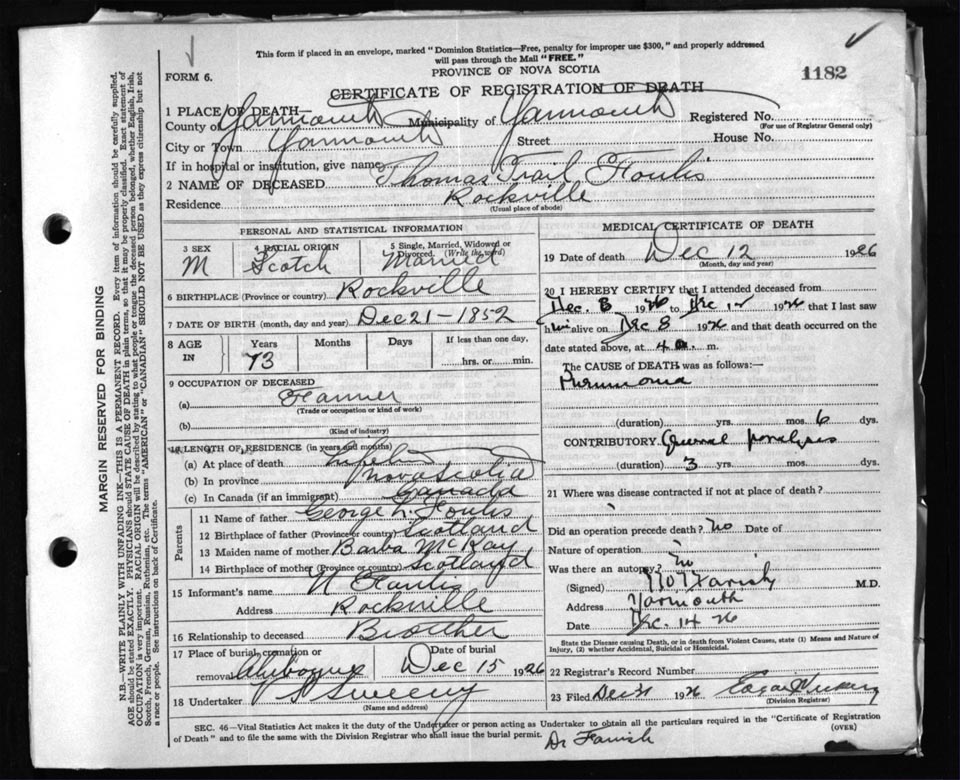 This form if placed in an envelope, marked "Dominion Statistics—Free, penalty for improper use $300," and properly addressed
will pass through the Mail "FREE."
FORM 6.
PROVINCE OF NOVA SCOTIA
1182
CERTIFICATE OF REGISTRATION OF DEATH
1 PLACE OF DEATH—
County of Yarmouth Municipality of Yarmouth Registered No.
(For use of Registrar General only)
City or Town Yarmouth Street House No.
If in hospital or institution, give name
2 NAME OF DECEASED Thomas Trail Foulis
Residence Rockville
(Usual place of abode)
PERSONAL AND STATISTICAL INFORMATION
3 SEX M
4 RACIAL ORIGIN Scotch
5 Single, Married, Widowed or Divorced. (Write the word) Married
6 BIRTHPLACE (Province or country) Rockville
7 DATE OF BIRTH (month, day and year) Dec 21-1852
8 AGE IN Years Months Days If less than one day,
73 hrs. or min.
9 OCCUPATION OF DECEASED
(a) Farmer
(Trade or occupation or kind of work)
(b)
(Kind of industry)
10 LENGTH OF RESIDENCE (in years and months)
(a) At place of death
(b) In province Nova Scotia
(c) In Canada (if an immigrant) Canada
Parents
11 Name of father George L. Foulis
12 Birthplace of father (Province or country) Scotland
13 Maiden name of mother Barba McKay
14 Birthplace of mother (Province or country) Scotland
15 Informant's name N Foulis
Address Rockville
16 Relationship to deceased Brother
17 Place of burial, cremation or removal Date of burial
Dec 15 1926
18 Undertaker Sweeny
(Name and address)
MEDICAL CERTIFICATE OF DEATH
19 Date of death Dec 12 1926
(Month, day and year)
20 I HEREBY CERTIFY that I attended deceased from
Dec. 8 1926 to Dec 12 1926 that I last saw
him alive on Dec 8 1926 and that death occurred on
date stated above, at 4 a. m.
The CAUSE of DEATH was as follows:—
Pneumonia
(duration) yrs. mos. 6 dys.
CONTRIBUTORY General paralysis
(duration) 3 yrs. mos. dys.
21 Where was disease contracted if not at place of death?
Did an operation precede death? no Date of
Nature of operation
Was there an autopsy? no
(Signed) Farish M.D.
Address Yarmouth
Date Dec. 14 26
State the Disease causing Death, or in death from Violent Causes, state (1) Means and Nature of
Injury, (2) whether Accidental, Suicidal or Homicidal.
22 Registrar's Record Number
23 Filed Dec 31 1926
(Division Registrar)
SEC. 46—Vital Statistics Act makes it the duty of the Undertaker or person acting as Undertaker to obtain all the particulars required in the "Certificate of Registration
of Death" and to file the same with the Division Registrar who shall issue the burial permit.
(OVER)
Dr Farish
MARGIN RESERVED FOR BINDING
N.B.—WRITE PLAINLY WITH UNFADING INK—THIS IS A PERMANENT RECORD. Every item of information should be carefully supplied.
AGE should be stated EXACTLY. PHYSICIANS should STATE CAUSE OF DEATH in plain terms, so that it may be properly classified. Exact statement of
OCCUPATION is very important. RACIAL ORIGIN will be described by stating to what people or tongue the deceased person belonged, whether English, Irish,
Scotch, French, German, Russian, Ruthenian, etc. The terms "AMERICAN" or "CANADIAN" SHOULD NOT BE USED as they express citizenship but not
a race or people. See instructions on back of Certificate.